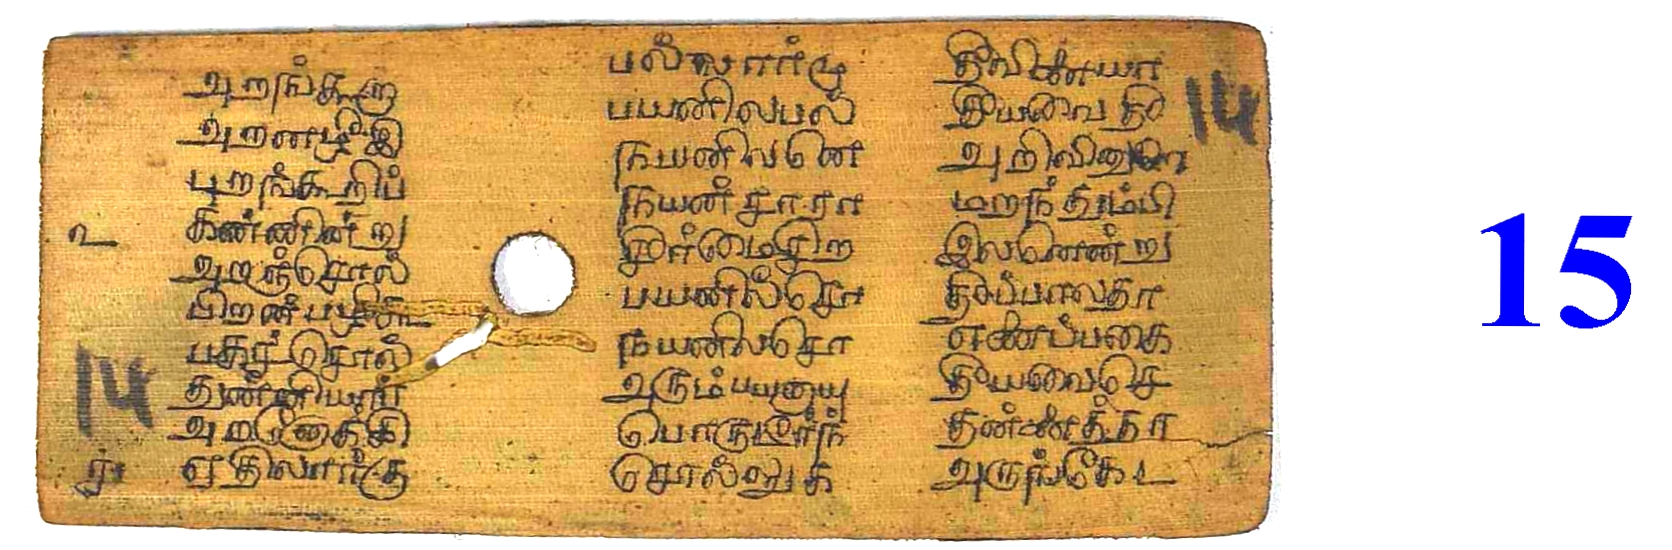 14
உ
அறங்கூறா
அறனழீஇ
புறங்கூறிப்
கண்ணின்று
அறஞ்சொல்
பிறன்பழிகூ
பகச்சொல்
துன்னியார்
அறனோக்கி
ஏதிலார்கு
பல்லார்மு
பயனிலபல்
நயனிலனெ
நயன்சாரா
சீர்மைசிற
பயனில்சொ
நயனிலசொ
அரும்பயனாயு
பொருடீர்ந்
சொல்லுக
தீவினையா
தீயவைதீ
அறிவினுளெ
மறந்தும்பி
இலனென்று
தீப்பாலதா
எனைப்பகை
தீயவைசெ
தன்னைத்தா
அருங்கேட
14
15